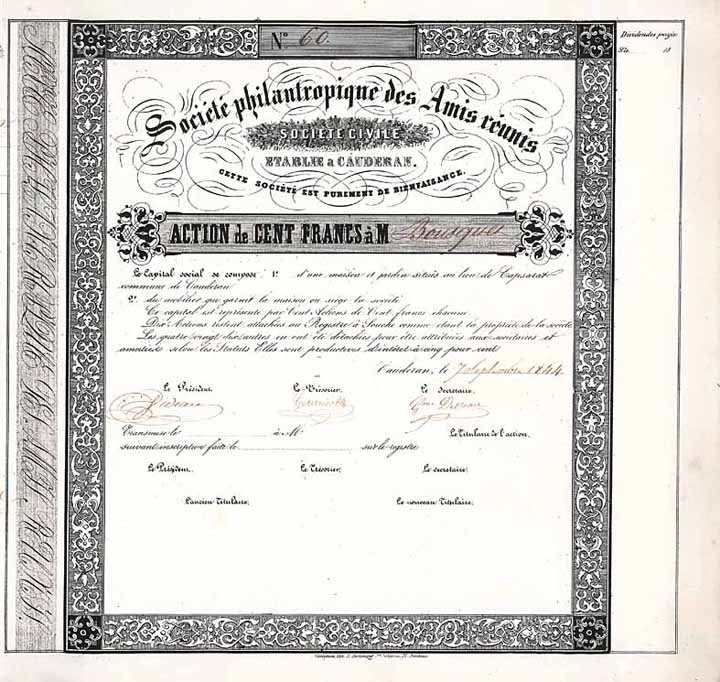 N° 60.
Dividendes payés
18
Société philantropique des Amis réunis
SOCIÉTÉ CIVILE
ETABLIE à CAUDERAN.
CETTE SOCIÉTÉ EST PUREMENT DE BIENFAISANCE.
ACTION de CENT FRANCS à M Bousquet
Le Capital social se compose 1° d'une maison et jardin situés au lieu de Capsarat
commune de Caudéran
2° du mobilier qui garnit la maison ou siège la société
Ce capital est représenté par Cent Actions de Cent francs chacune
Dix Actions restent attachées au Registre à Souche comme étant la propriété de la société
Les quatre vingt dix autres en ont été détachées pour être attribuées aux sociétaires et
amorties selon les Statuts Elles sont productives d'intérêt à cinq pour cent
Cauderan, le 7 Septembre 1844.
Le Président. Le Trésorier. Le secrétaire.
Transmise le à M.
Le Titulaire de l'action.
suivant inscription faite le sur le registre
Le Président. Le Trésorier. Le secrétaire.
L'ancien Titulaire. Le nouveau Titulaire.